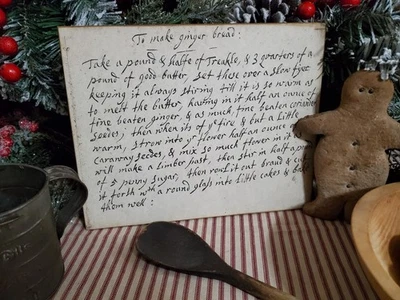 To make ginger bread:
Take a pound & halfe of treakle, & 3 quarters of a
pound of good butter, set these over a slow fyer
keeping it always stiring till it is so warm as
to melt the butter, having in it half an ounce of
fine beaten ginger, & as much, fine beaten coriander
seedes; then when its of ye fire & but a little
warm, strow into ye flower half an ounce of
Caraway seedes, & mix so much flower as
will make a limber past, then stir in half a po
of 5 penny sugar, then rowl it out broad & cu
it forth with a round glass into little cakes & b
them well: